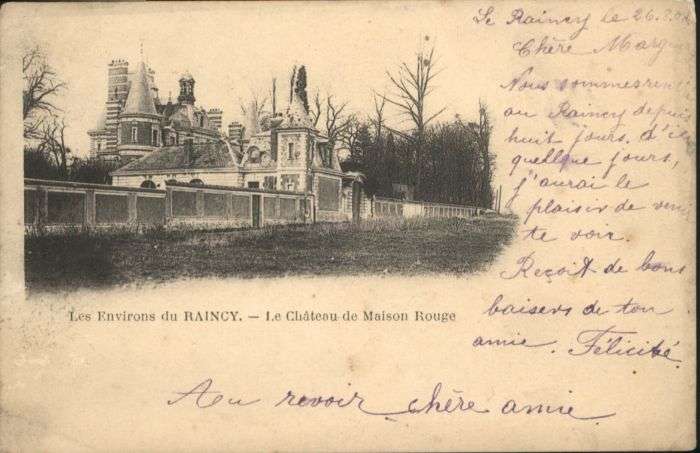 Le Raincy le 26.
Chère
Nous sommes
au Raincy depuis
huit jours. d'ici
quelque jours,
j'aurai le
plaisir de
te voir.
Reçoit de bons
baisers de ton
amie. Félicité
Les Environs du RAINCY. — Le Château de Maison Rouge
Au revoir chère amie